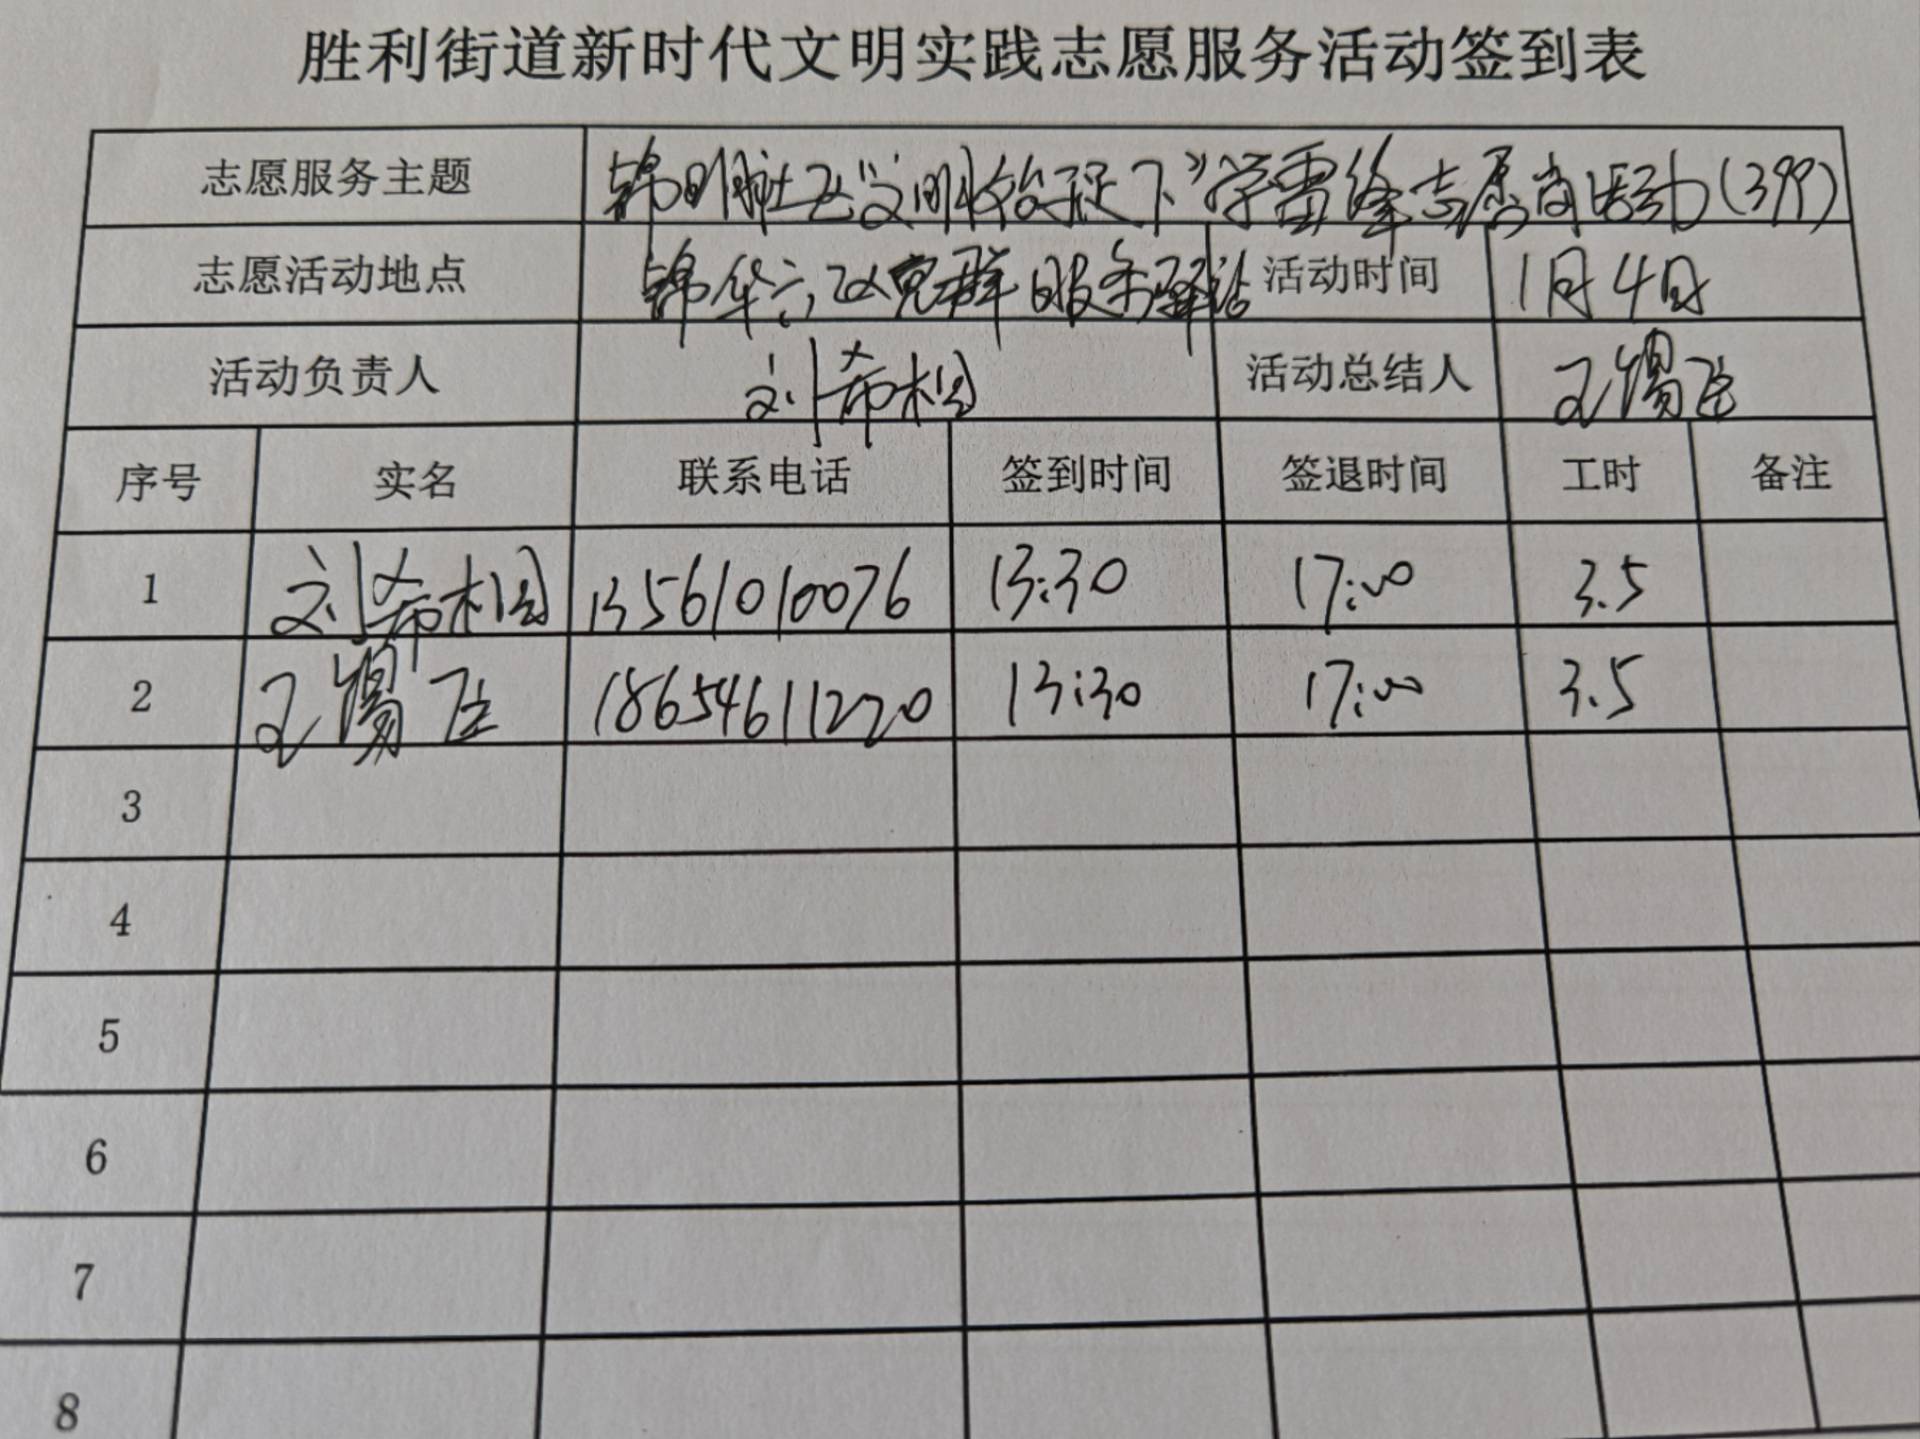 胜利街道新时代文明实践志愿服务活动签到表
志愿服务主题 锦明社区“文明始于足下”学雷锋志愿活动(399)
志愿活动地点 锦华六区党群服务驿站 活动时间 1月4日
活动负责人 刘希相 活动总结人 王锡
序号 实名 联系电话 签到时间 签退时间 工时 备注
1 刘希 13561010076 13:30 17:00 3.5
2 王锡 18654611220 13:30 17:00 3.5
3
4
5
6
7
8